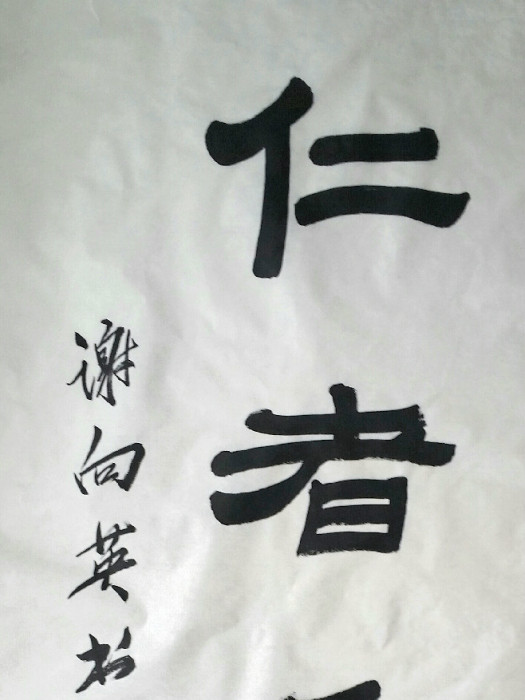 仁者
谢向英书